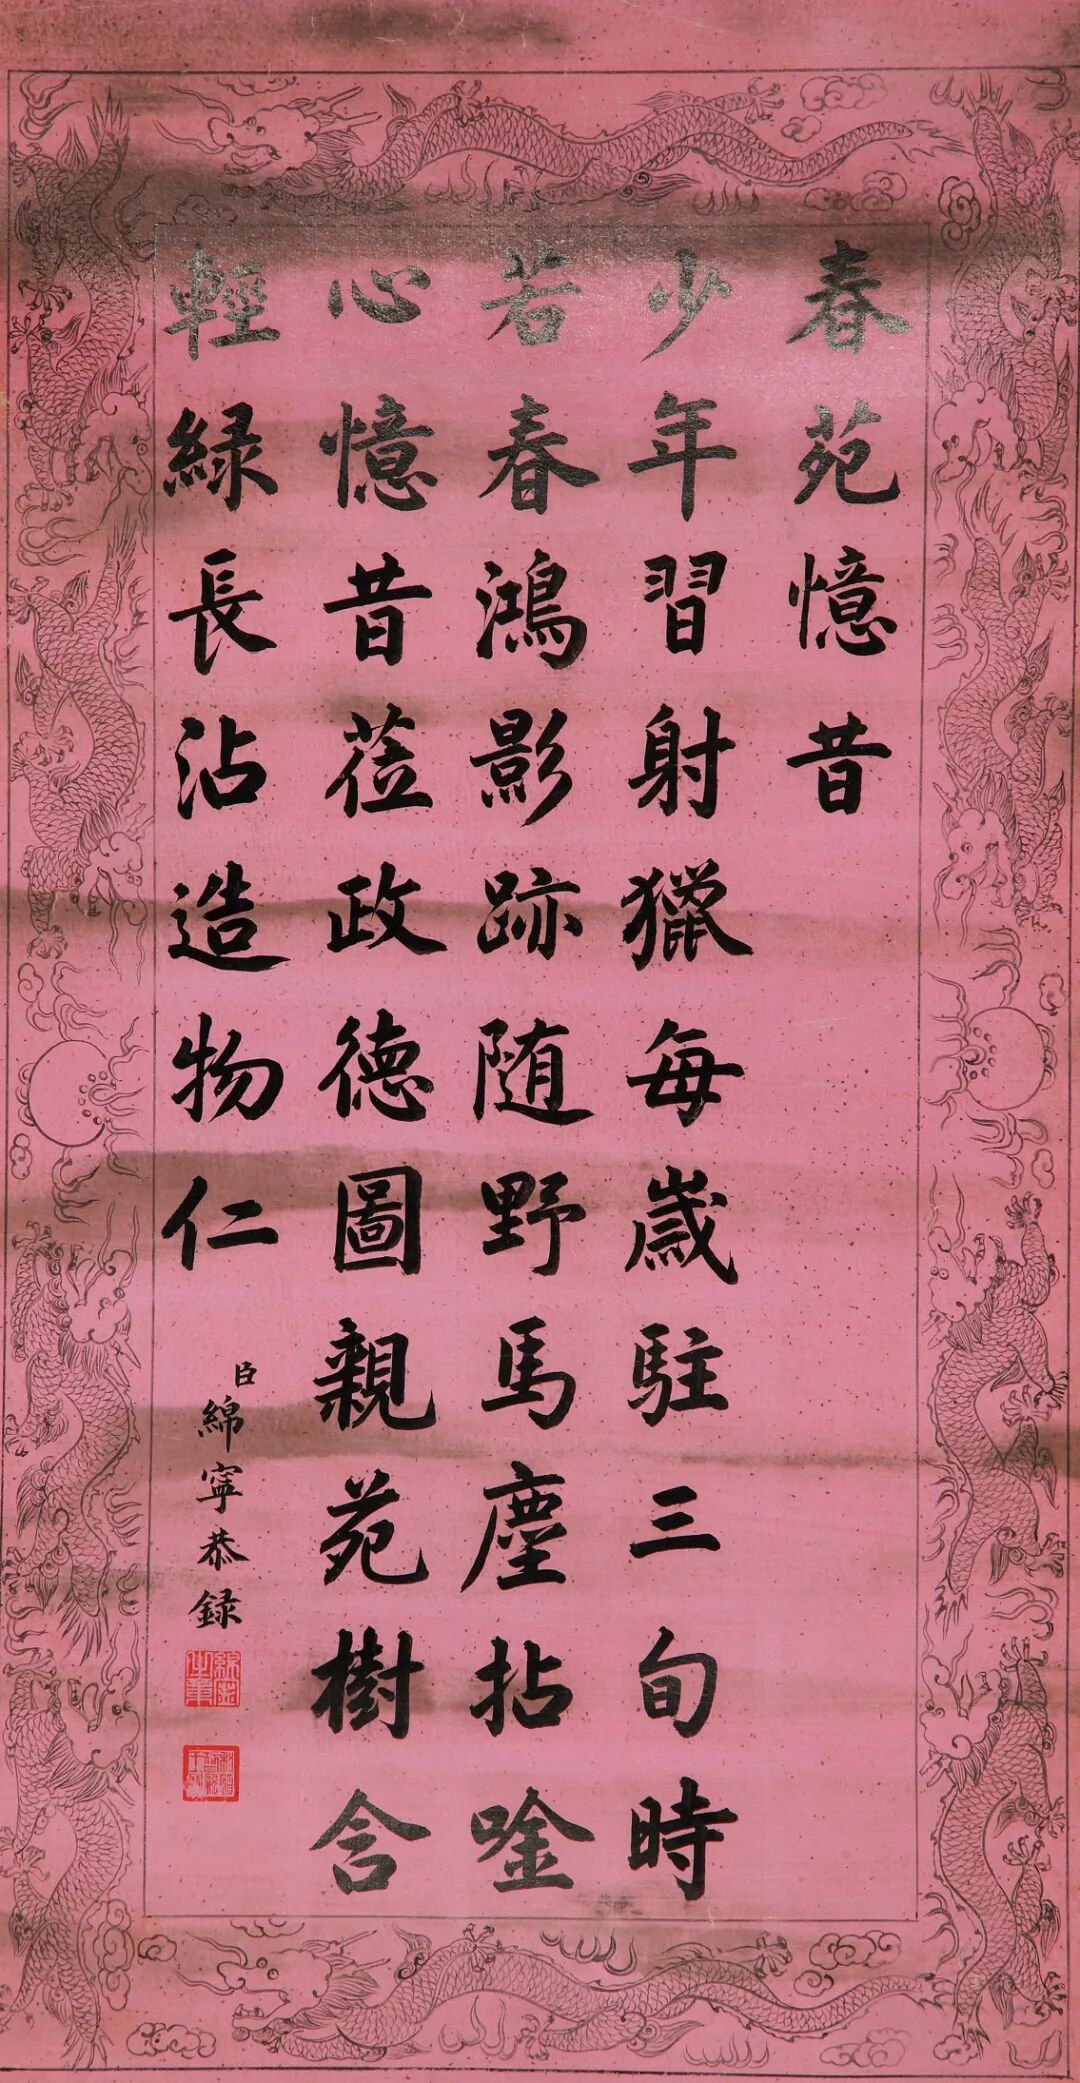 春苑憶昔
少年習射獵每歲駐三旬時
若春鴻影跡随野馬塵拈唫
心憶昔莅政德圖親苑樹含
輕綠長沾造物仁
臣綿寧恭錄